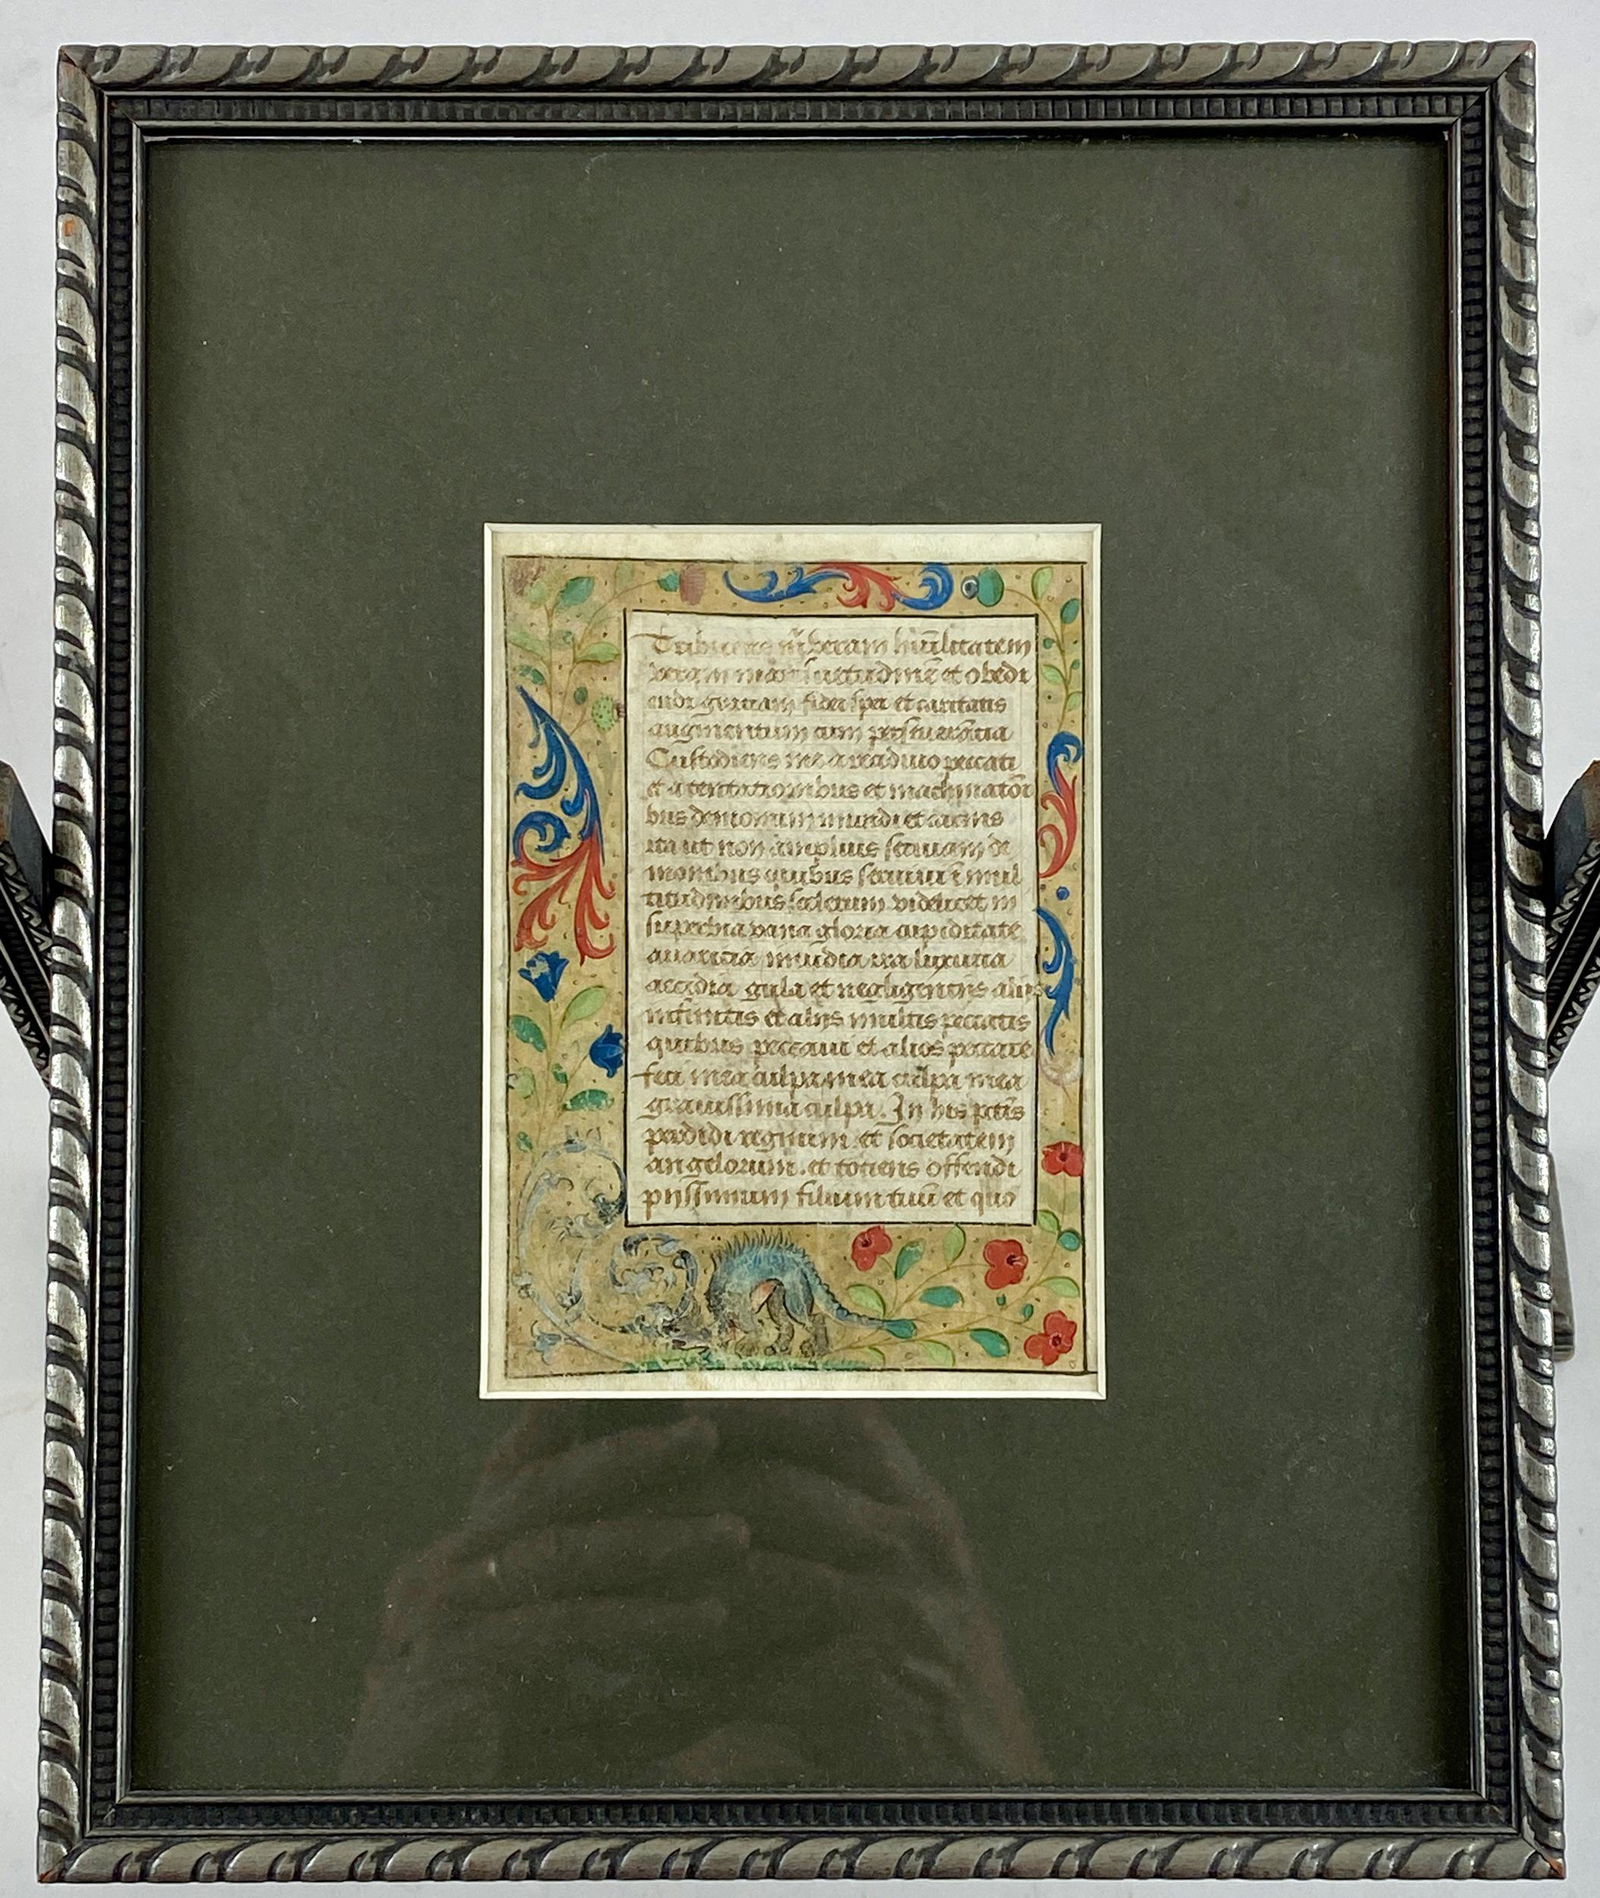 Tribuens m̄ veram hūilitatem
veram mansuetudinē et obedi
endi gratiam fidei spei et caritatis
augmentum cum perseverācia
Custodiens me a reciduio peccati
et a tentationibus et machinatōi
bus demonum mundi et carnis
ita ut non amplius seruiam de
monibus quibus seruiui ī mul
titudinibus scelerum videlicet in
superbia vana gloria cupiditate
auaricia inuidia ira luxuria
accidia gula et negligentijs alijs
infinitis et alijs multis peccatis
quibus peccaui et alios peccare
feci mea culpa mea culpa mea
grauissima culpa. In his pctis
perdidi regnum et societatem
angelorum. et totiens offendi
pijssimum filium tuū et quo